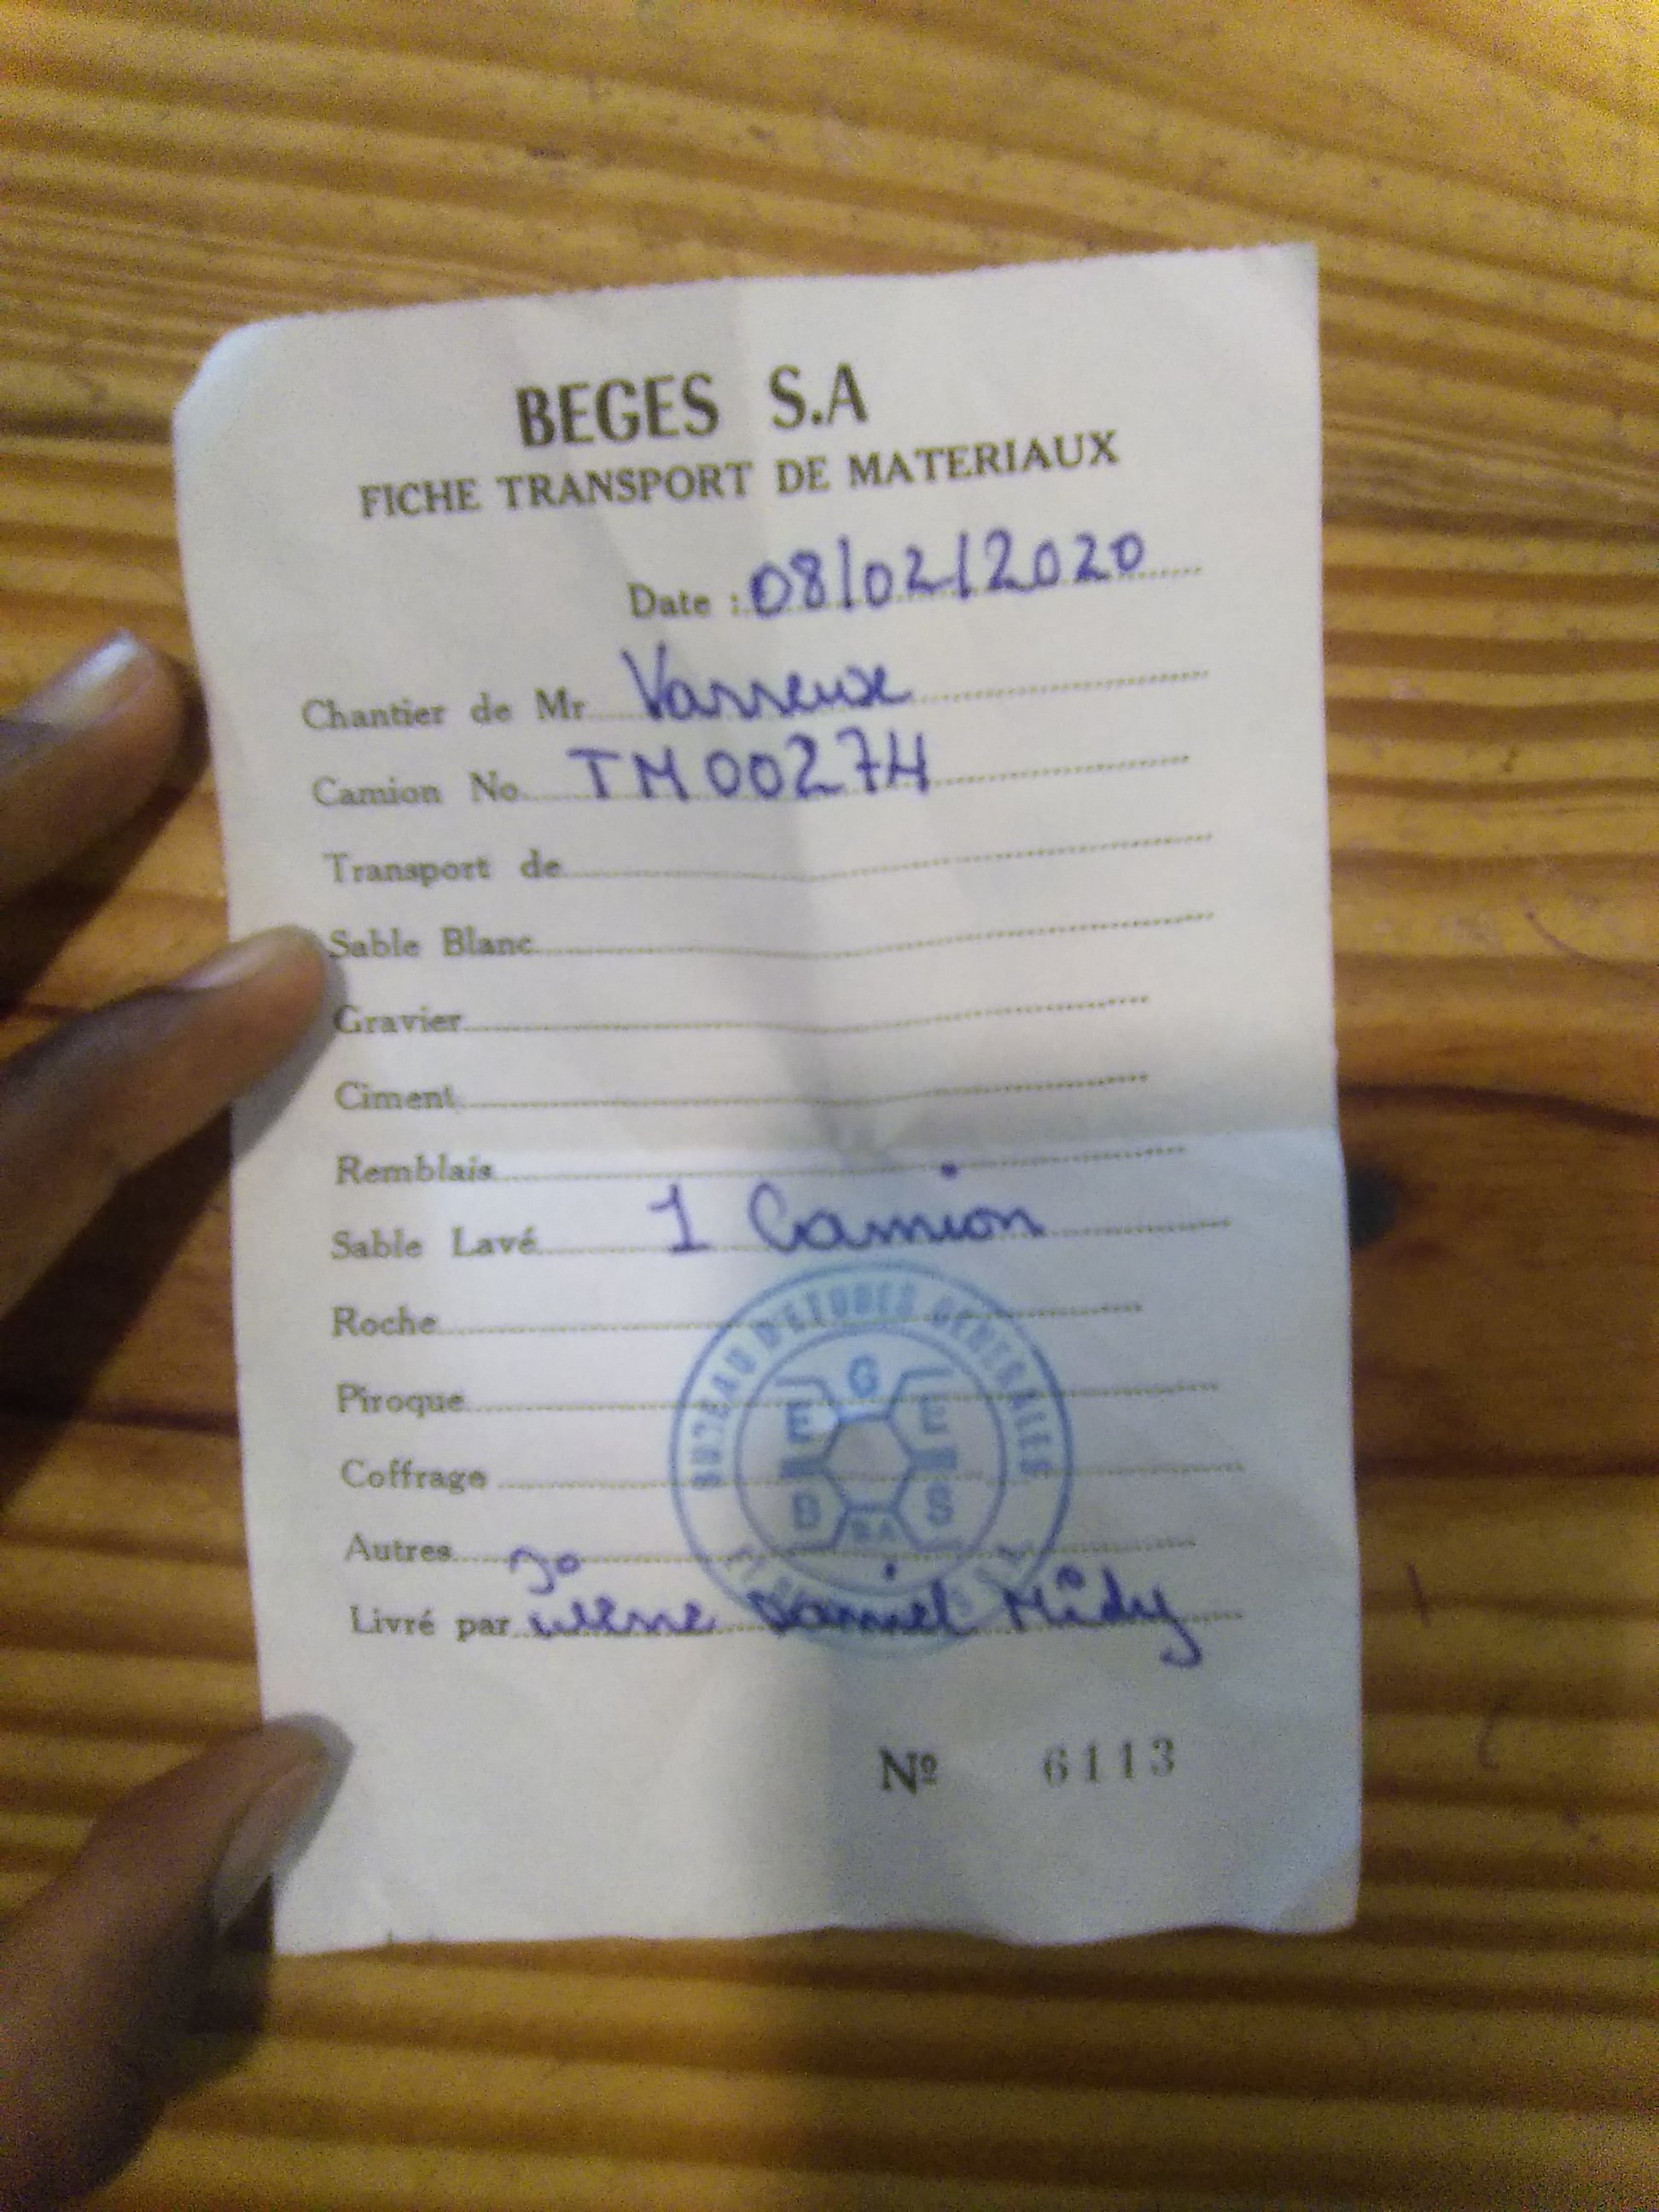 BEGES S.A
FICHE TRANSPORT DE MATERIAUX
Date : 08/02/2020
Chantier de Mr Varreux
Camion No TM00274
Transport de
Sable Blanc
Gravier
Ciment
Remblais
Sable Lavé 1 Camion
Roche
Piroque
Coffrage
Autres
Livré par Daniel Midy
BUREAU D'ETUDES GENERALES
B E G E S
S.A
Nº 6113